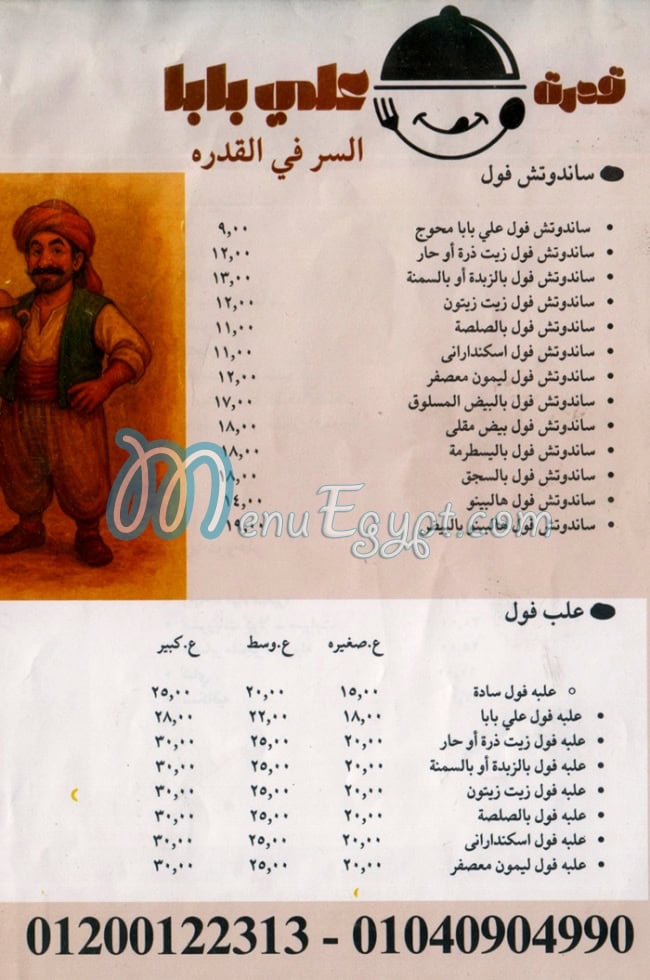 قدرة علي بابا
السر في القدره
ساندوتش فول
ساندوتش فول علي بابا محوج ٩,٠٠
ساندوتش فول زيت ذرة أو حار ١٢,٠٠
ساندوتش فول بالزبدة أو بالسمنة ١٣,٠٠
ساندوتش فول زيت زيتون ١٢,٠٠
ساندوتش فول بالصلصة ١١,٠٠
ساندوتش فول اسكندارانى ١١,٠٠
ساندوتش فول ليمون معصفر ١٢,٠٠
ساندوتش فول بالبيض المسلوق ١٧,٠٠
ساندوتش فول بيض مقلى ١٨,٠٠
ساندوتش فول باليسطرمة ١٨,٠٠
ساندوتش فول بالسجق ١٨,٠٠
ساندوتش فول هالبينو ١٤,٠٠
ساندوتش فول هالبينو بالبيض ١٩,٠٠
MenuEgypt.com
علب فول
ع.صغيره ع.وسط ع.كبير
علبه فول سادة ١٥,٠٠ ٢٠,٠٠ ٢٥,٠٠
علبه فول علي بابا ١٨,٠٠ ٢٢,٠٠ ٢٨,٠٠
علبه فول زيت ذرة أو حار ٢٠,٠٠ ٢٥,٠٠ ٣٠,٠٠
علبه فول بالزبدة أو بالسمنة ٢٠,٠٠ ٢٥,٠٠ ٣٠,٠٠
علبه فول زيت زيتون ٢٠,٠٠ ٢٥,٠٠ ٣٠,٠٠
علبه فول بالصلصة ٢٠,٠٠ ٢٥,٠٠ ٣٠,٠٠
علبه فول اسكندارانى ٢٠,٠٠ ٢٥,٠٠ ٣٠,٠٠
علبه فول ليمون معصفر ٢٠,٠٠ ٢٥,٠٠ ٣٠,٠٠
01200122313 - 01040904990